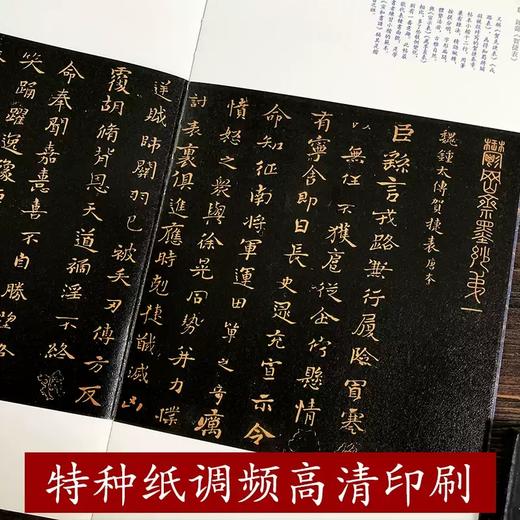 又稱《賀克捷表》《戎
路表》
鬱岡齋墨妙弟一
魏鍾太傅賀捷表 唐本
臣繇言戎路兼行履險冒寒
以無任不獲扈從企佇懸情
有寧舍即日長史逯充宣示令
命知征南將軍運田單之奇厲
憤怒之衆與徐晃同勢并力撲
討表裏俱進應時剋捷馘滅凶
逆賊帥關羽已被矢刃傅方反
覆胡脩背恩天道禍淫不終
命奉聞嘉憙喜不自勝望路
笑踊躍逸豫
特种纸调频高清印刷